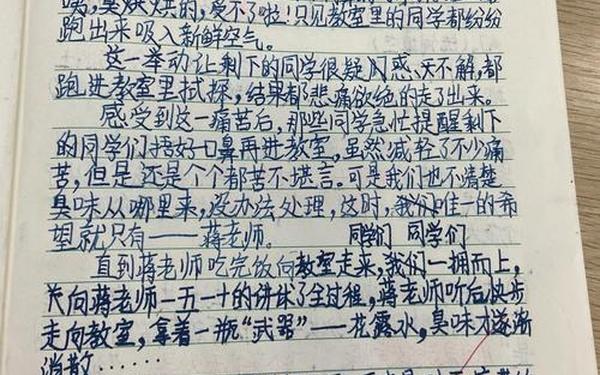 臭烘烘的,受不了啦!只见教室里的同学都纷纷
跑出来吸入新鲜空气。
这一举动让剩下的同学很疑惑、不解,都
跑进教室里试探,结果都悲痛欲绝的走了出来。
感受到这一痛苦后,那些同学急忙提醒剩下
的同学们捂好口鼻再进教室,虽然减轻了不少痛
苦,但是还是个个都苦不堪言。可是我们也不清楚
臭味从哪里来,没办法处理,这时,我们唯一的希
望就只有——蒋老师。 同学们 同学们
直到蒋老师吃完饭向教室走来,我们一拥而上,
向蒋老师一五一十的讲述了全过程,蒋老师听后快步
走向教室,拿着一瓶“武器”——花露水,臭味才逐渐
消散……